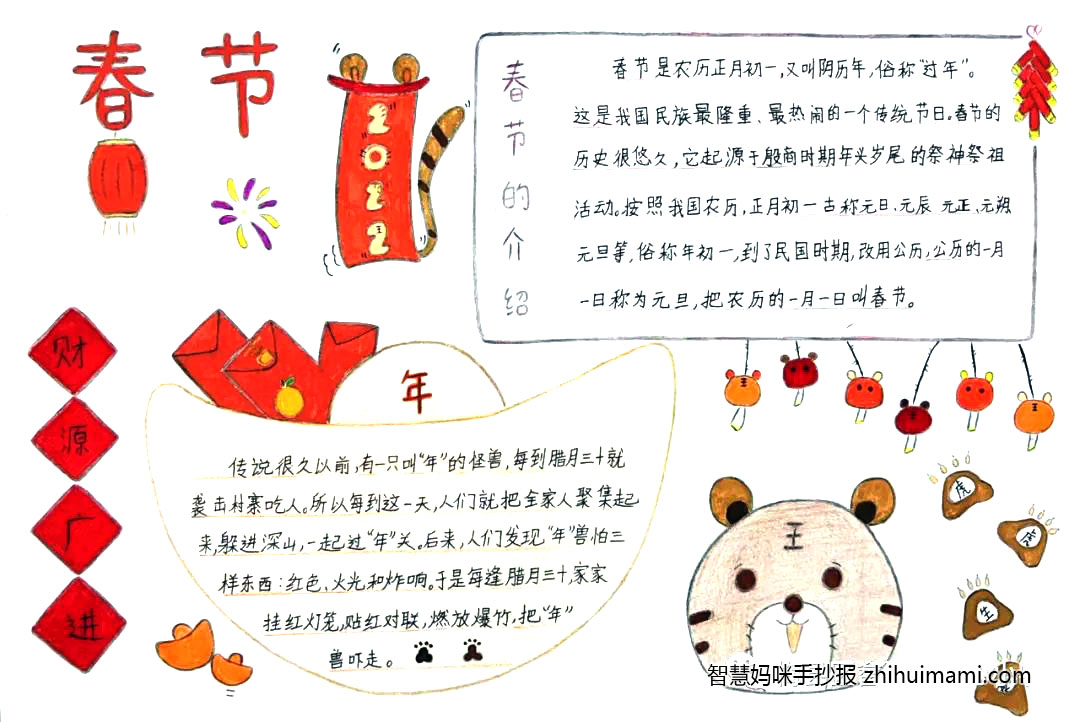 春节
2022
春节的介绍
春节是农历正月初一,又叫阴历年,俗称“过年”。
这是我国民族最隆重、最热闹的一个传统节日。春节的
历史很悠久,它起源于殷商时期年头岁尾的祭神祭祖
活动。按照我国农历,正月初一古称元日、元辰 元正、元朔
元旦等,俗称年初一,到了民国时期,改用公历,公历的一月
一日称为元旦,把农历的一月一日叫春节。
财
源
广
进
年
传说很久以前,有一只叫“年”的怪兽,每到腊月三十就
袭击村寨吃人。所以每到这一天,人们就把全家人聚集起
来,躲进深山,一起过“年”关。后来,人们发现“年”兽怕三
样东西:红色、火光和炸响。于是每逢腊月三十,家家
挂红灯笼,贴红对联,燃放爆竹,把“年”
兽吓走。
王
虎
虎
生
智慧妈咪手抄报 zhihuimami.com